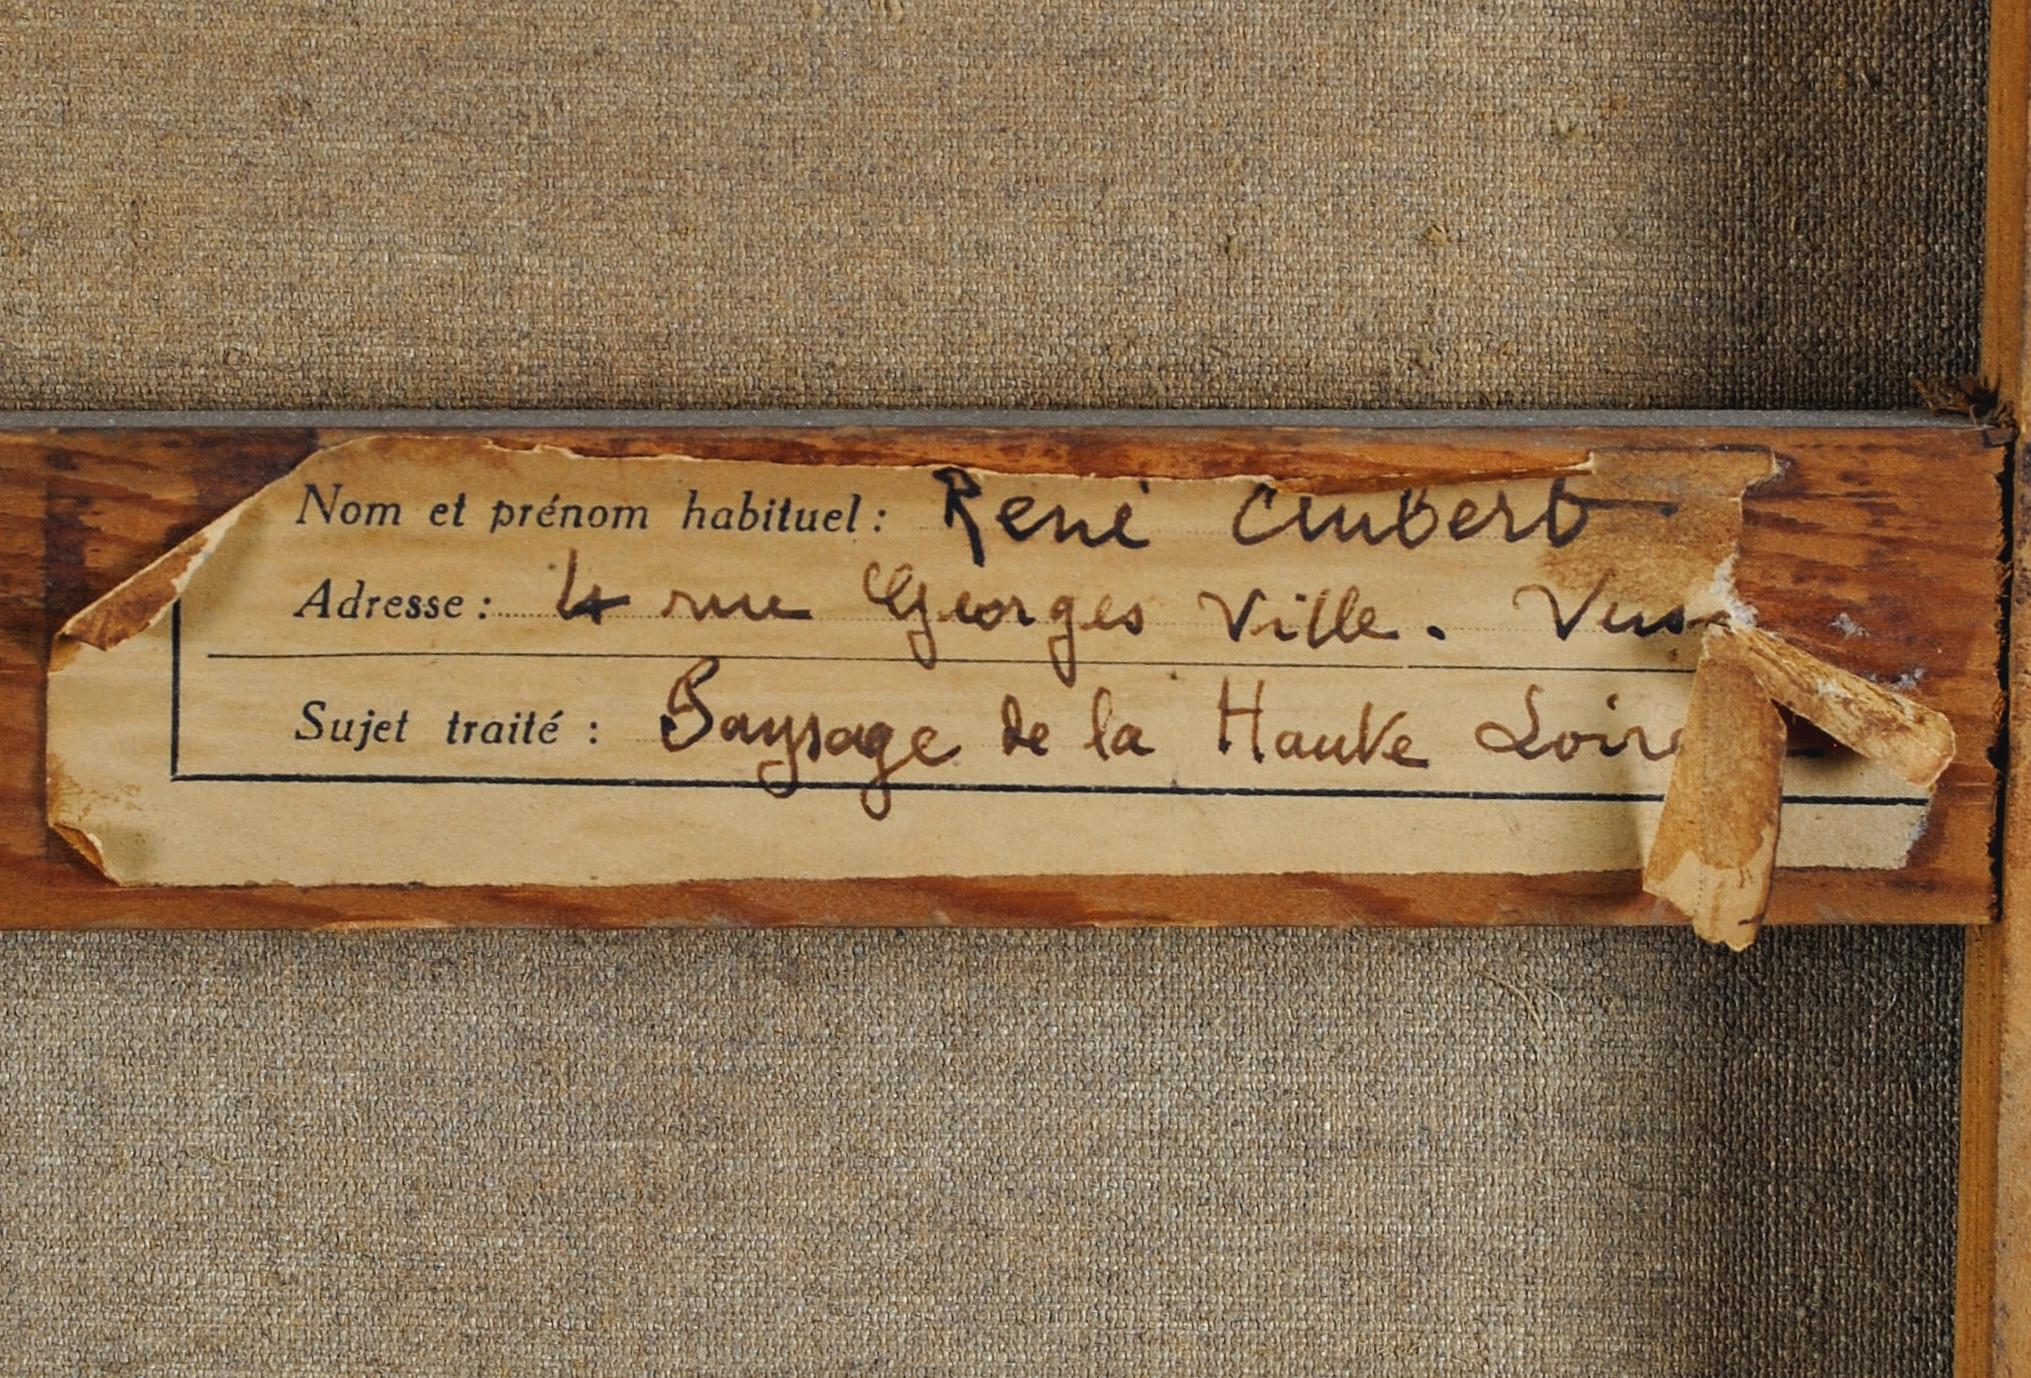 Nom et prénom habituel : René Aubert
Adresse : 4 rue Georges Ville.
Sujet traité : Paysage de la Haute Loire